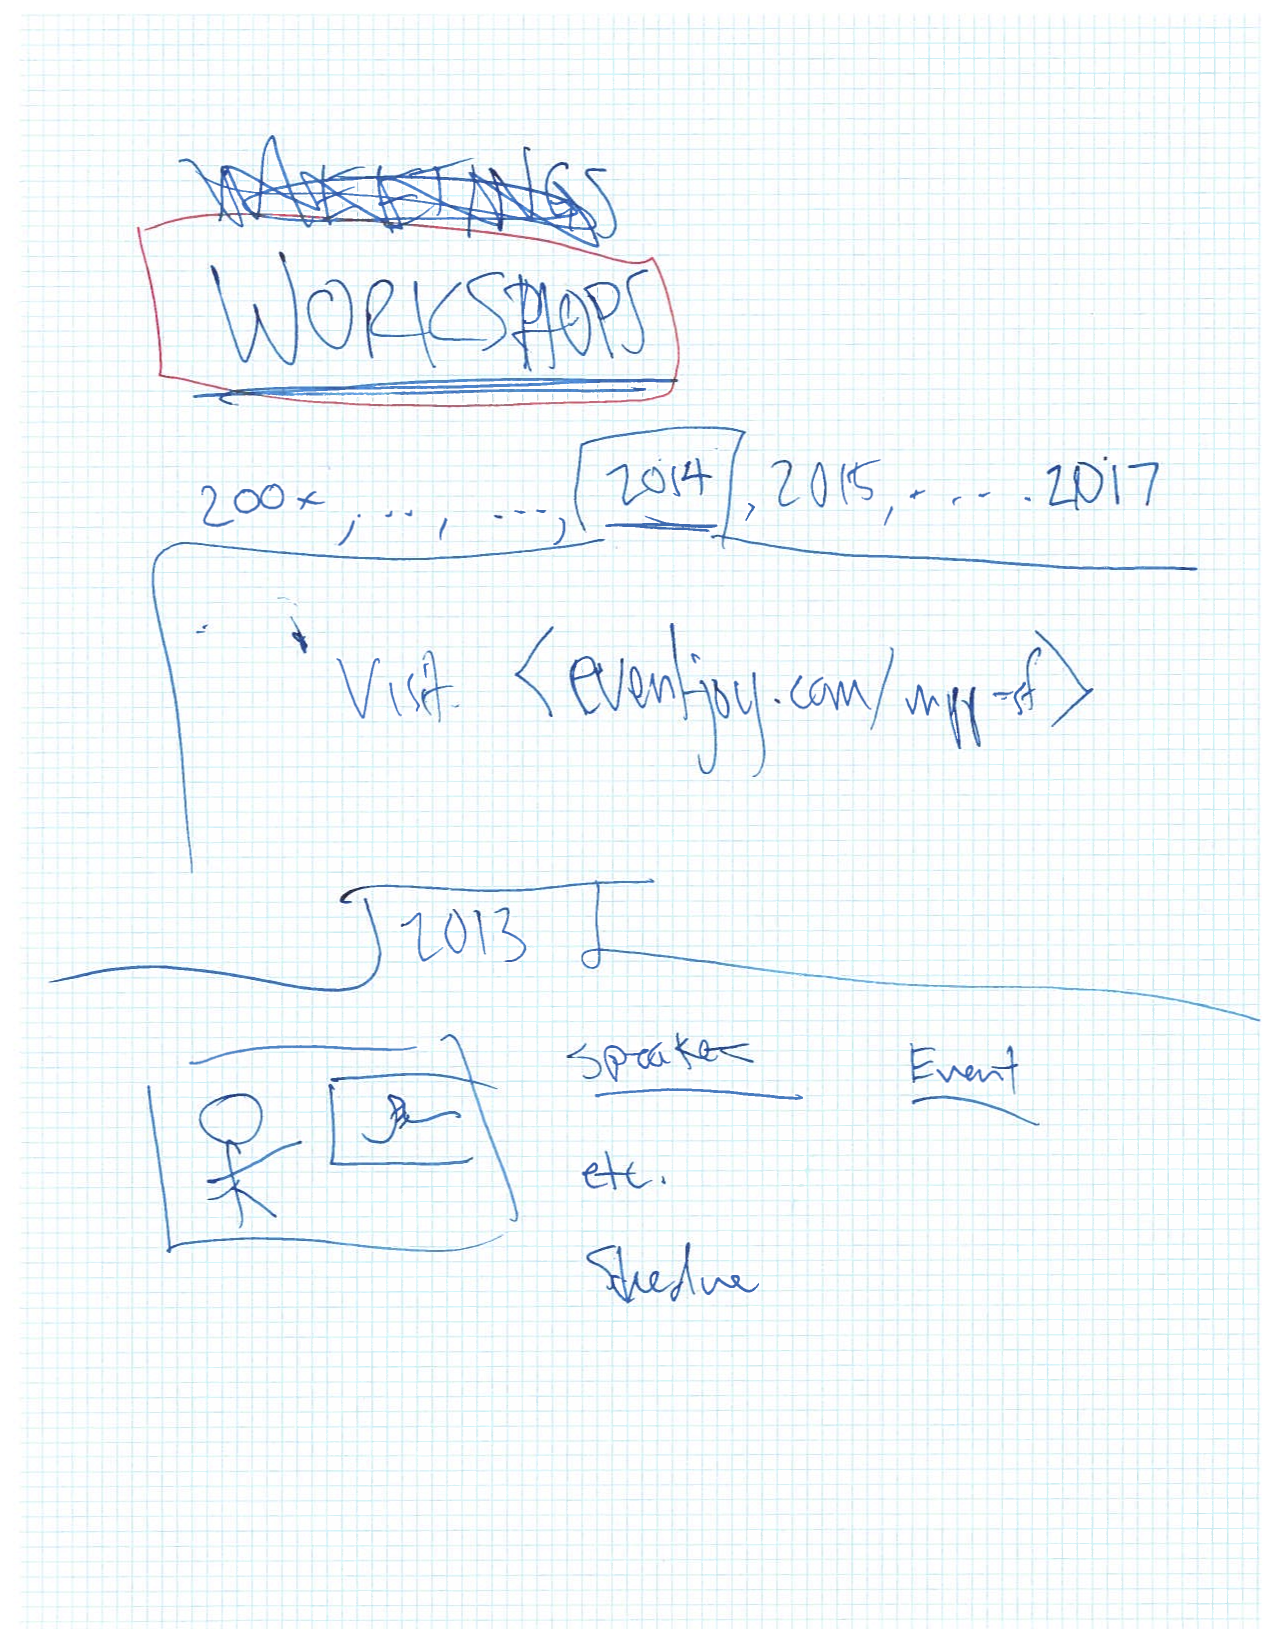 MEETINGS
WORKSHOPS
200x, ..., ...., 2014, 2015, ..... 2017
Visit <eventjoy.com/mpp-sf>
2013
Speaker Event
etc.